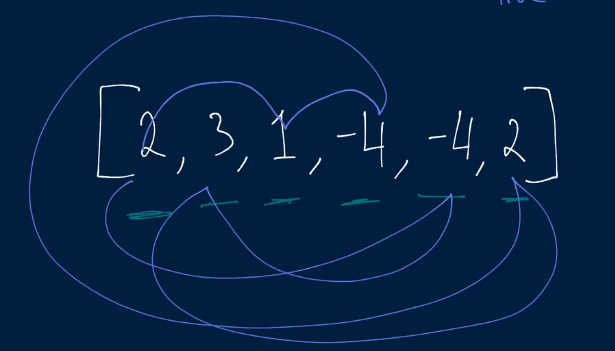 [2, 3, 1, -4, -4, 2]